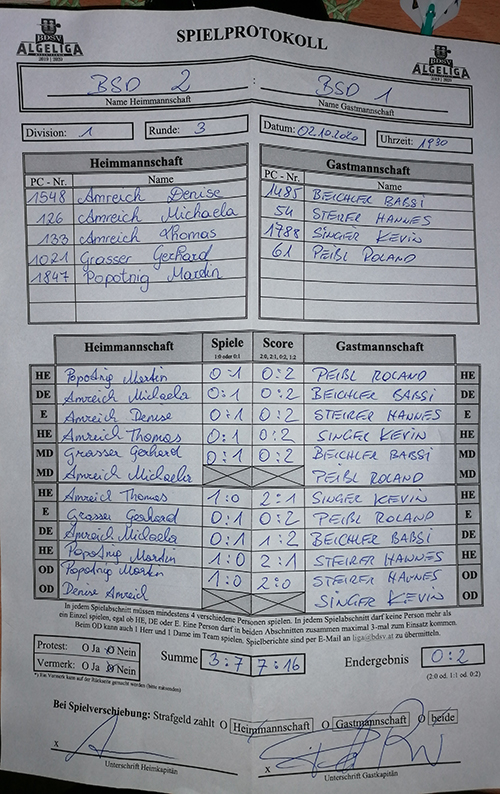 BDSV
ALGELIGA
2019 | 2020
SPIELPROTOKOLL
BDSV
ALGELIGA
2019 | 2020
BSD 2 : BSD 1
Name Heimmannschaft Name Gastmannschaft
Division: 1 Runde: 3 Datum: 02.10.2020 Uhrzeit: 1930
Heimmannschaft Gastmannschaft
PC - Nr. Name PC - Nr. Name
1548 Amreich Denise 1485 BEICHLER BABSI
126 Amreich Michaela 54 STEIRER HANNES
133 Amreich Thomas 1788 SINGER KEVIN
1021 Grasser Gerhard 61 PEIßL ROLAND
1847 Popotnig Martin
Heimmannschaft Spiele Score Gastmannschaft
1:0 oder 0:1 2:0, 2:1, 0:2, 1:2
HE Popotnig Martin 0:1 0:2 PEIßL ROLAND HE
DE Amreich Michaela 0:1 0:2 BEICHLER BABSI DE
E Amreich Denise 0:1 0:2 STEIRER HANNES E
HE Amreich Thomas 0:1 0:2 SINGER KEVIN HE
MD Grasser Gerhard 0:1 0:2 BEICHLER BABSI MD
MD Amreich Michaela PEIßL ROLAND MD
HE Amreich Thomas 1:0 2:1 SINGER KEVIN HE
E Grasser Gerhard 0:1 0:2 PEIßL ROLAND E
DE Amreich Michaela 0:1 1:2 BEICHLER BABSI DE
HE Popotnig Martin 1:0 2:1 STEIRER HANNES HE
OD Popotnig Martin 1:0 2:0 STEIRER HANNES OD
OD Denise Amreich SINGER KEVIN OD
In jedem Spielabschnitt müssen mindestens 4 verschiedene Personen spielen. In jedem Spielabschnitt darf keine Person mehr als
ein Einzel spielen, egal ob HE, DE oder E. Eine Person darf in beiden Abschnitten zusammen maximal 3-mal zum Einsatz kommen.
Beim OD kann auch 1 Herr und 1 Dame im Team spielen. Spielberichte sind per E-Mail an liga@bdsv.at zu übermitteln.
Protest: O Ja O Nein
Vermerk: O Ja O Nein
Summe 3:7 7:16 Endergebnis 0:2
*) Ein Vermerk kann auf der Rückseite gemacht werden (bitte ankreuzen)
(2:0 od. 1:1 od. 0:2)
Bei Spielverschiebung: Strafgeld zahlt O Heimmannschaft O Gastmannschaft O beide
x x
Unterschrift Heimkapitän Unterschrift Gastkapitän